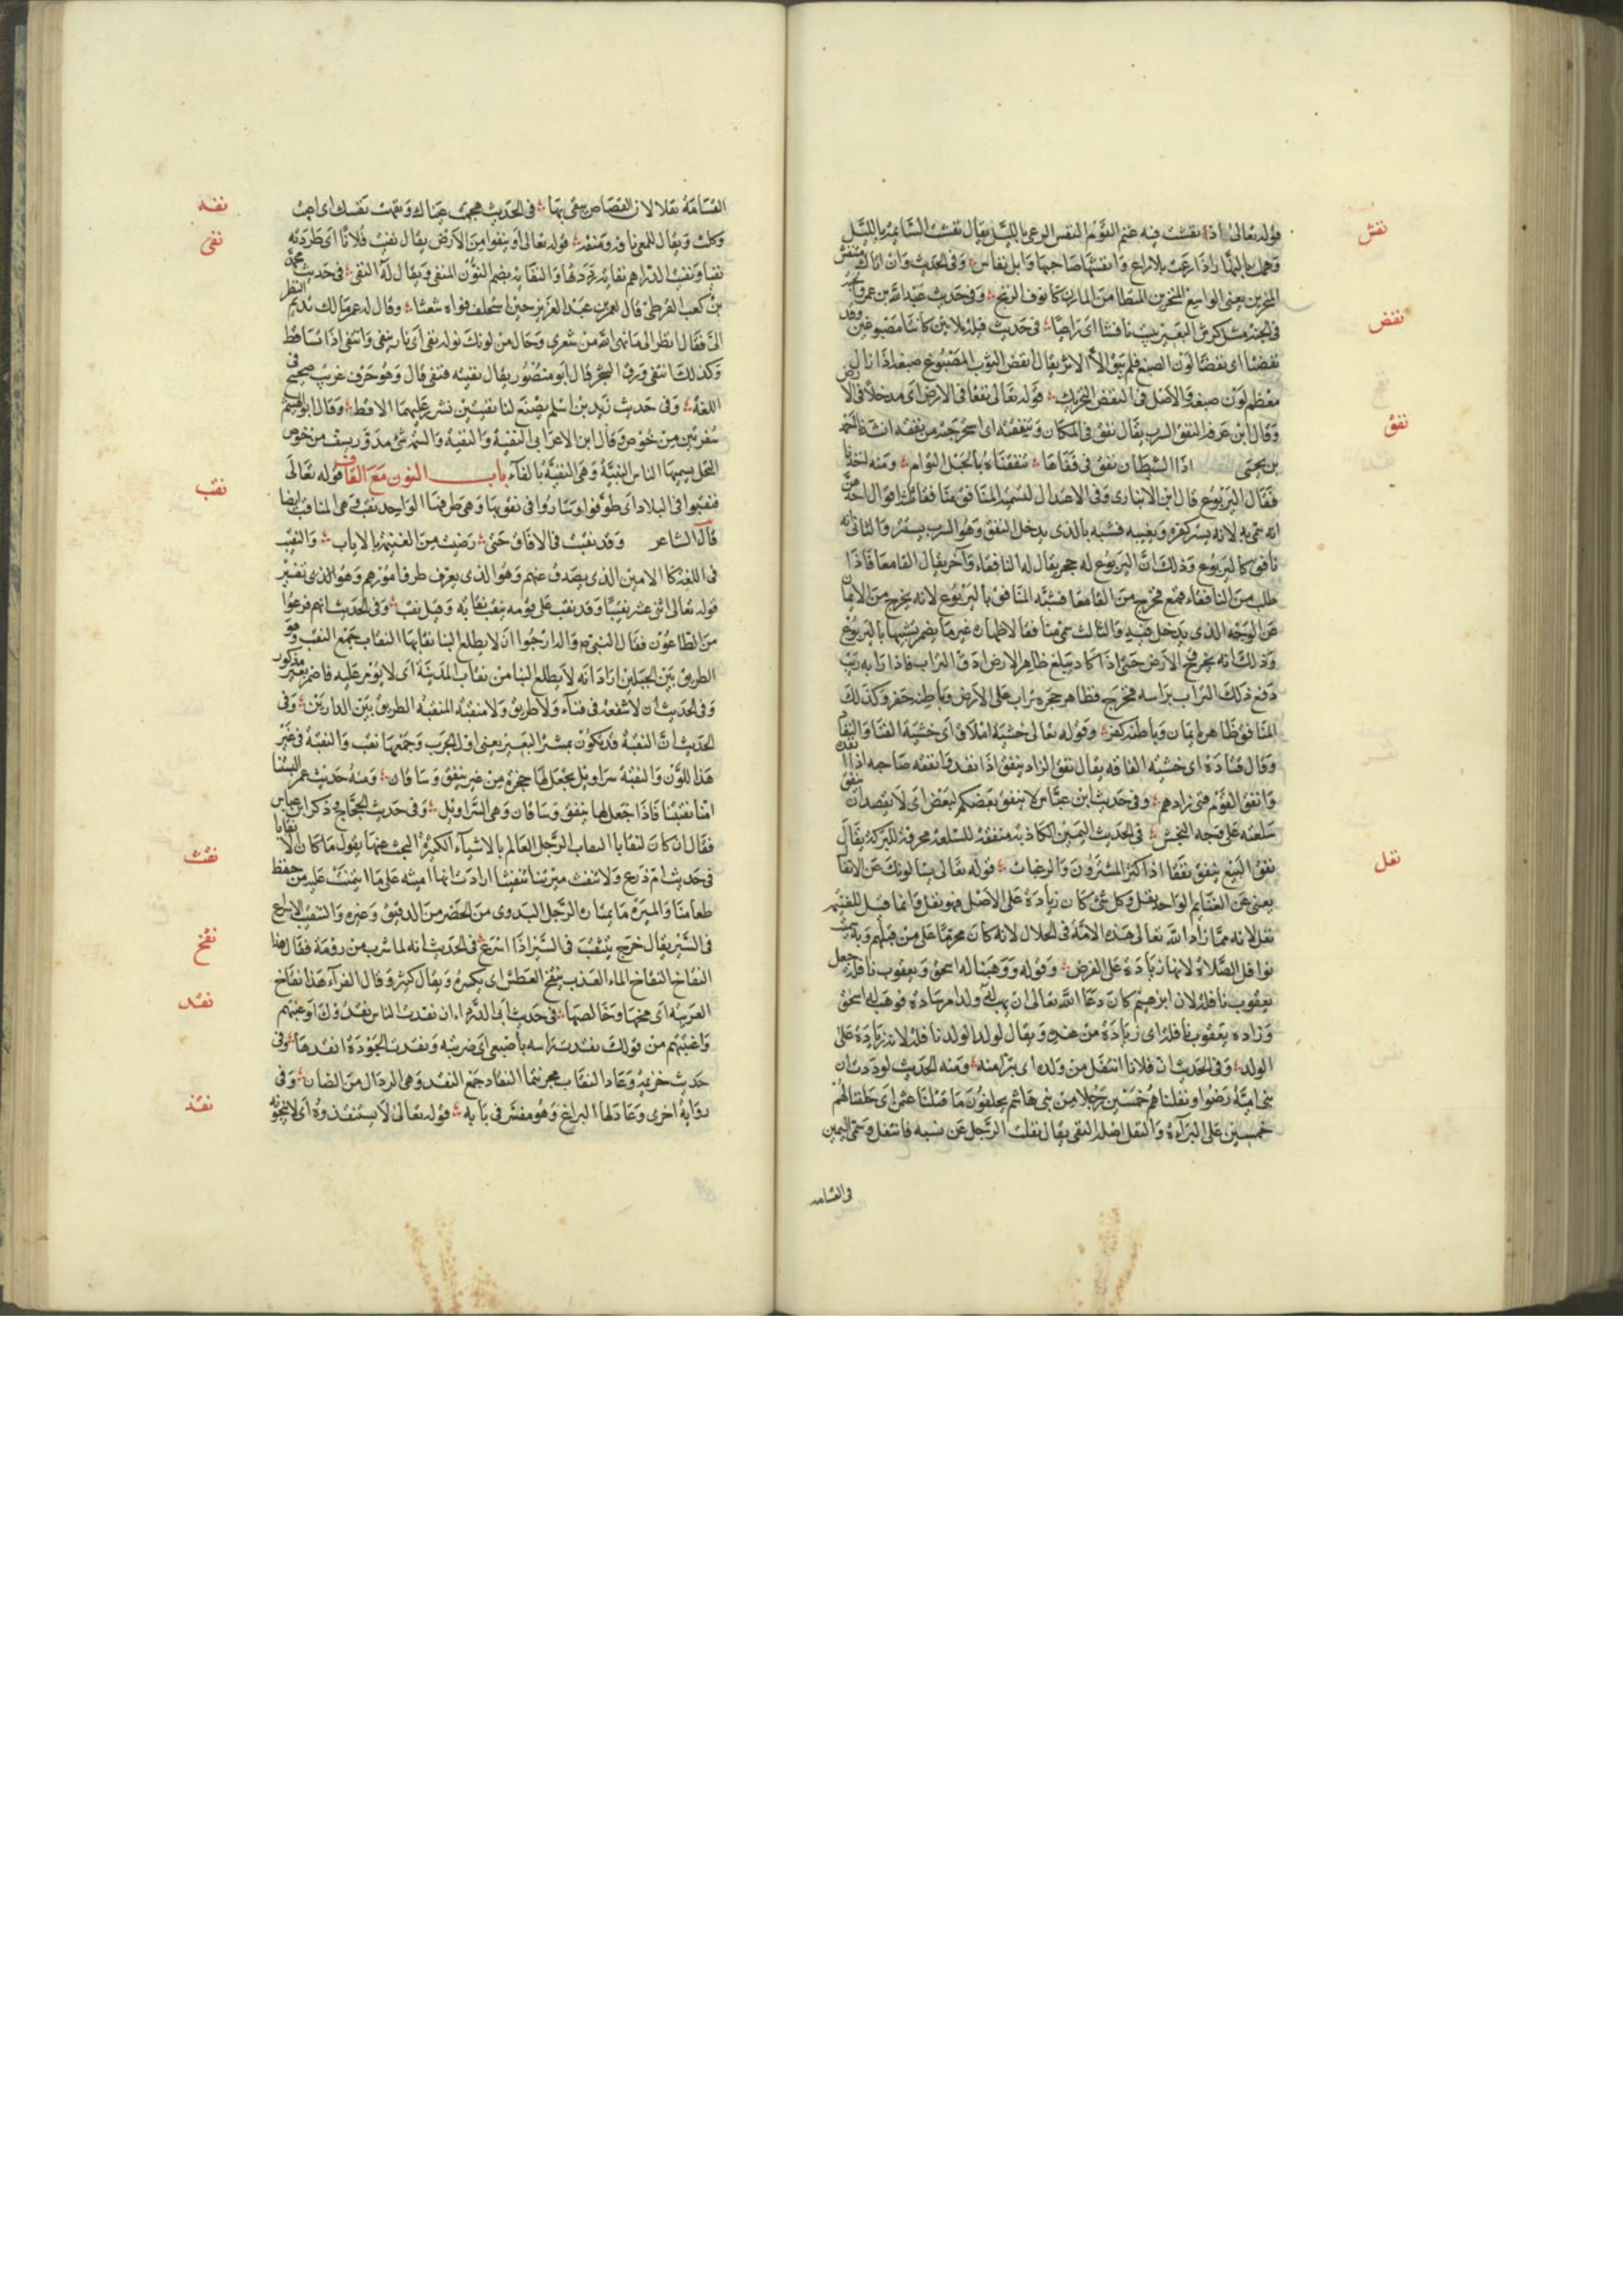 نفش
قوله تعالى اذ نفشت فيه غنم القوم النفس الرعى بالليل يقال نفشت السائمة بالليل
وهملت بالنهار اذا رعت بلا راع وانفشها صاحبها وابل نفاش وفى الحديث وان اتاك منتفش
المنخرين يعنى الواسع المنخرين المتطامن المارن كانوف الزنج وفى حديث عبد الله بن عمرو
فى الجنة مثل كرش البعير يبيت نافشا اى راعيا فى حديث قيلة ملاءتين كانتا مصبوغتين وقد
نفض
نفضتا اى نفضتا لون الصبغ فلم يبق الا الاثر يقال نفض الثوب المصبوغ صبغه اذا زال
معظم لون صبغه والاصل فى النفض التحريك قوله تعالى نفقا فى الارض اى مدخلا فى الارض
نفق
وقال ابن عرفة النفق السرب يقال نفق فى المكان وتنفقته اى استخرجته من نفقه انشد احمد
بن يحيى اذا الشيطان نفق فى قفاها تنفقناه بالحبل التوام ومنه اخذ
فقال اليربوع قال ابن الانبارى وفى الاعتدال لتسمية المنافق منافقا ثلثة اقوال احدها
انه سمى به لانه يستر كفره ويغيبه فشبه بالذى يدخل النفق وهو السرب يستتر والثانى انه
نافق كاليربوع وذلك ان اليربوع له جحر يقال له النافقاء وآخر يقال القاصعا فاذا
طلب من النافقاء قصع فخرج من القاصعا فشبه المنافق باليربوع لانه يخرج من الايمان
من الوجه الذى يدخل فيه والثالث سمى منافقا لاظهاره غير ما يضمر تشبيها باليربوع
وذلك انه يخرق الارض حتى اذا كاد يبلغ ظاهر الارض ادق التراب فاذا رابه ريب
دفع ذلك التراب براسه فخرج فظاهر جحره تراب على الارض وباطنه حفر وكذلك
المنافق ظاهره ايمان وباطنه كفر وقوله تعالى خشية املاق اى خشية الفنا والنفاد
وقال قتادة اى خشية الفاقة يقال نفق الزاد ينفق اذا نفد وانفقه صاحبه اذا انفده
وانفق القوم فنى زادهم وفى حديث ابن عباس لا ينفق بعضكم لبعض اى لا يقصد ان ينفق
سلعته على وجه النجش فى الحديث اليمين الكاذبة منفقة للسلعة ممحقة للبركة يقال
نفق البيع ينفق نفقا اذا كثر المشترون والرغبات قوله تعالى يسالونك عن الانفال
نفل
يعنى عن الغنايم الواحد نفل وكل شئ كان زيادة على الاصل فهو نفل وانما قيل للغنيمة
نفل لانه مما زاد الله تعالى هذه الامة فى الحلال لانه كان محرما على من قبلهم وبه سميت
نوافل الصلاة لانها زيادة على الفرض وقوله ووهبنا له اسحق ويعقوب نافلة جعل
يعقوب نافلة لان ابرهيم كان دعا الله تعالى ان يهب له ولدا من سارة فوهب له اسحق
وزاده يعقوب نافلة اى زيادة من عنده ويقال لولد الولد نافلة لانه زيادة على
الولد وفى الحديث ان فلانا انتفل من ولده اى تبرا منه ومنه الحديث لوددت ان
بنى امية رضوا ونفلناهم خمسين رجلا من بنى هاشم يحلفون ما قتلنا عثمن اى حلفنا لهم
خمسين على البراءة والنفل اصله النفى يقال نفلت الرجل عن نسبه فانتفل وسمى اليمين
فى القسامه
القسامة نفلا لان القصاص ينفى بها فى الحديث هجمت عيناك ونفهت نفسك اى اعيت
نفه
وكلت ويقال للمعى نافه ومنفه قوله تعالى او ينفوا من الارض يقال نفيت فلانا اى طردته
نفى
نفيا ونفيت الدراهم نفاية رددتها والنفاية بضم النون المنفى ويقال له النفى فى حديث محمد
بن كعب القرظى قال لعمر بن عبد العزيز حين استخلف فراه شعثا وقال له عمر مالك تديم النظر
الى فقال انظر الى ما نفى الله من شعرى وحال من لونك قوله نفى اى ثار ينفى وانتفى اذا تساقط
وكذلك انتفى ورق الشجر قال ابو منصور يقال نفيته فنفى قال وهو حرف غريب صحيح فى
اللغة وفى حديث زيد بن اسلم يصنع لنا نفيتين نشرر عليهما الاقط وقال ابو الهيثم
سفرتين من خوص وقال ابن الاعرابى النفية والنفية والسمة شئ مدور يسف من خوص
النخل يسميها الناس النبية وهى النفية بالفاء باب النون مع القاف قوله تعالى
نقب
فنقبوا فى البلاد اى طوفوا وساروا فى نقوبها وهى طرقها الواحد نقب وهى المناقب ايضا
قال الشاعر وقد نقبت فى الافاق حتى رضيت من الغنيمة بالاياب والنقيب
فى اللغة كالامين الذى يصدق عنهم وهو الذى يعرف طرق امورهم وهو الذى تفسير
قوله تعالى اثنى عشر نقيبا وقد نقب على قومه ينقب نقابة وقيل نقب وفى الحديث انهم فزعوا
من الطاعون فقال النبى ارجوا ان لا يطلع الينا نقابها النقاب جمع النقب وهو
الطريق بين الجبلين اراد انه لا يطلع الينا من نقاب المدينة اى لا يؤثر عليه فاضمر غير مذكور
وفى الحديث ان لا شفعة فى فناء ولا طريق ولا منقبة المنقبة الطريق بين الدارين وفى
الحديث ان النقبة قد تكون بمشفر البعير يعنى اول الجرب وجمعها نقب والنقبة فى غير
هذا اللون والنقبة سراويل يجعل لها حجزة من غير نيفق وساقان ومنه حديث عمر البستنا
امنا نقبتنا فاذا جعل لها نيفق وساقان وهى السراويل وفى حديث الحجاج وذكر ابن عباس
فقال ان كان لنقابا النقاب الرجل العالم بالاشياء الكثير البحث عنها يقول ما كان الا نقابا
نقث
فى حديث ام زرع ولا تنقث ميرتنا تنقيثا ارادت انها امينة على ما ائتمنت عليه من حفظ
طعامنا والميرة ما يمتاره الرجل البدوى من الحضر من الدقيق وغيره والتنقيث الاسراع
فى السير يقال خرج ينتقث فى السير اذا اسرع فى الحديث انه لما شرب من رومة فقال هذا
نقخ
النقاخ النقاخ الماء العذب ينقخ العطش اى يكسره ويقال كثر وقال الفراء هذا نقاخ
العربية اى مخها وخالصها فى حديث ابى الدرداء ان نقدت الناس نقدوك او عبتهم
نقد
واغتبتهم من قولك نقدت راسه باصبعى اى ضربته ونقدت الجوزة انقدها وفى
حديث خزيمة وعاد النقاد مجرنثما النقاد جمع النقد وهى الرذال من الضان وفى
رواية اخرى وعاد لها اليراع وهو مفسر فى بابه قوله تعالى لا يستنقذوه اى لا ينجونه
نقذ